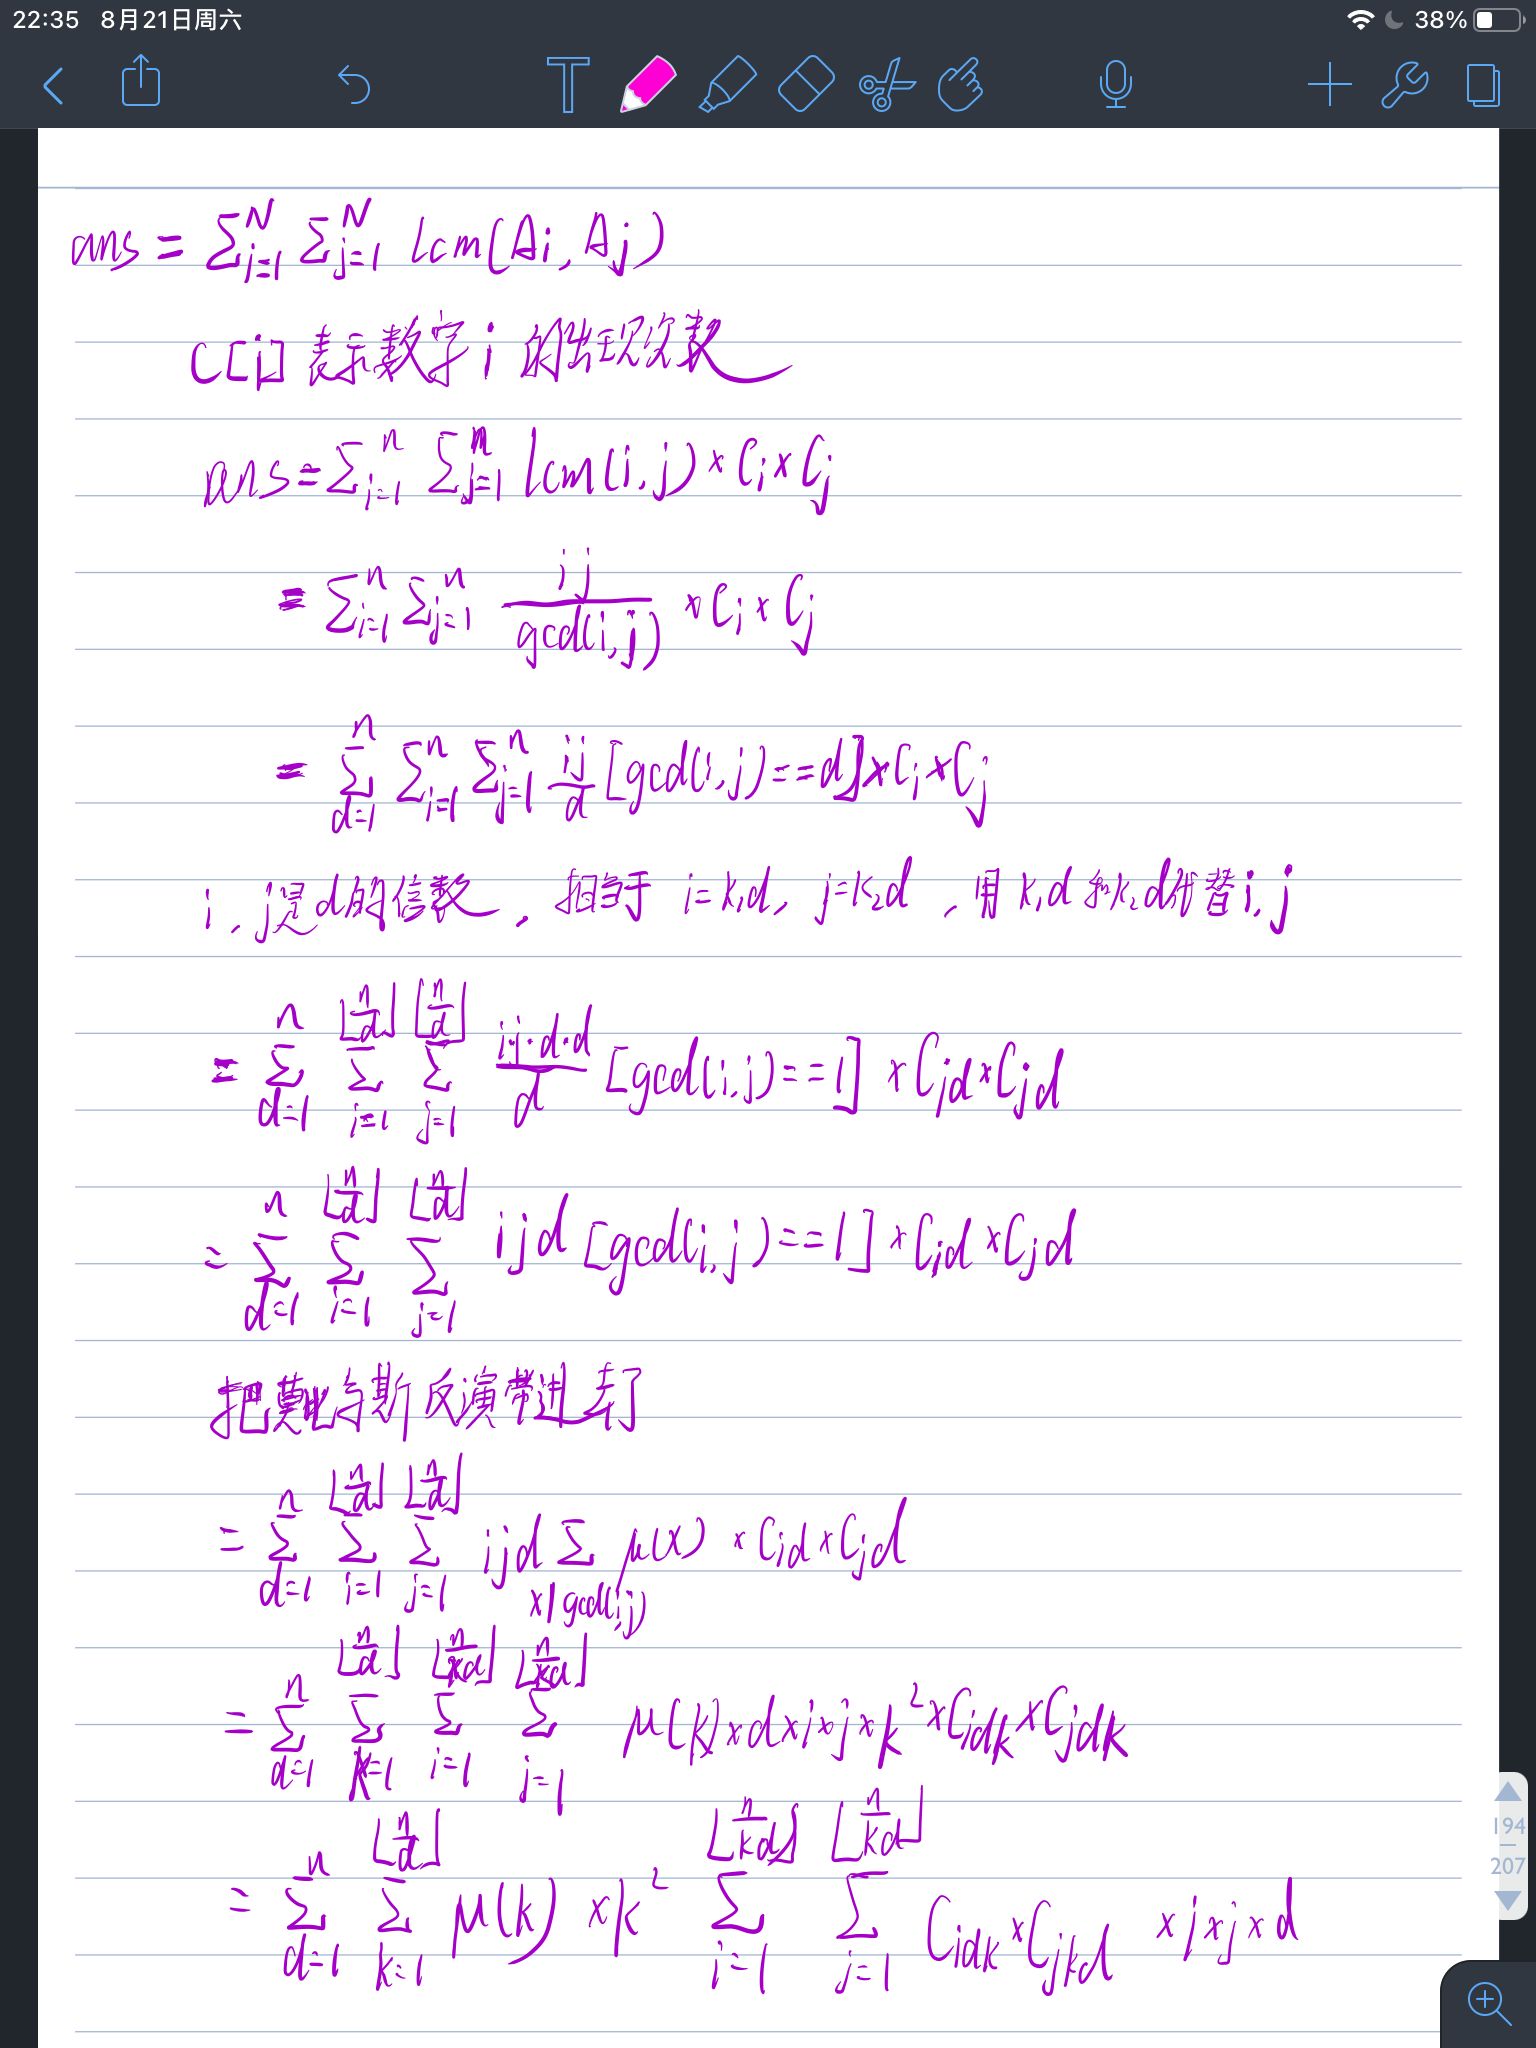 22:35 8月21日周六 38%
ans = ∑_{i=1}^{N} ∑_{j=1}^{N} lcm(Ai, Aj)
C[i] 表示数字 i 的出现次数
ans = ∑_{i=1}^{n} ∑_{j=1}^{n} lcm(i, j) × C_i × C_j
= ∑_{i=1}^{n} ∑_{j=1}^{n} \frac{ij}{gcd(i, j)} × C_i × C_j
= ∑_{d=1}^{n} ∑_{i=1}^{n} ∑_{j=1}^{n} \frac{ij}{d} [gcd(i, j)==d] × C_i × C_j
i, j是d的倍数, 相当于 i=k₁d, j=k₂d, 用 k₁d 和 k₂d 代替 i, j
= ∑_{d=1}^{n} ∑_{i=1}^{⌊n/d⌋} ∑_{j=1}^{⌊n/d⌋} \frac{i·j·d·d}{d} [gcd(i, j)==1] × C_{id} × C_{jd}
= ∑_{d=1}^{n} ∑_{i=1}^{⌊n/d⌋} ∑_{j=1}^{⌊n/d⌋} ijd [gcd(i, j)==1] × C_{id} × C_{jd}
把莫比乌斯反演带进去了
= ∑_{d=1}^{n} ∑_{i=1}^{⌊n/d⌋} ∑_{j=1}^{⌊n/d⌋} ijd ∑_{x|gcd(i,j)} μ(x) × C_{id} × C_{jd}
= ∑_{d=1}^{n} ∑_{k=1}^{⌊n/d⌋} ∑_{i=1}^{⌊n/kd⌋} ∑_{j=1}^{⌊n/kd⌋} μ(k) × d × i × j × k² × C_{idk} × C_{jdk}
= ∑_{d=1}^{n} ∑_{k=1}^{⌊n/d⌋} μ(k) × k² ∑_{i=1}^{⌊n/kd⌋} ∑_{j=1}^{⌊n/kd⌋} C_{idk} × C_{jkd} × i × j × d
194
207